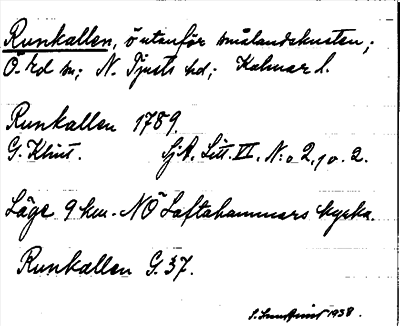 Runkallen, ö utanför smålandskusten;
Ö. Ed sn; N. Tjusts hd; Kalmar l.
Runkallen 1789.
G. Klint. SjA. Litt. VI. N:o 2, 1 o. 2.
Läge 9 km. NÖ Loftahammars kyrka.
Runkallen G. 37.
1938.